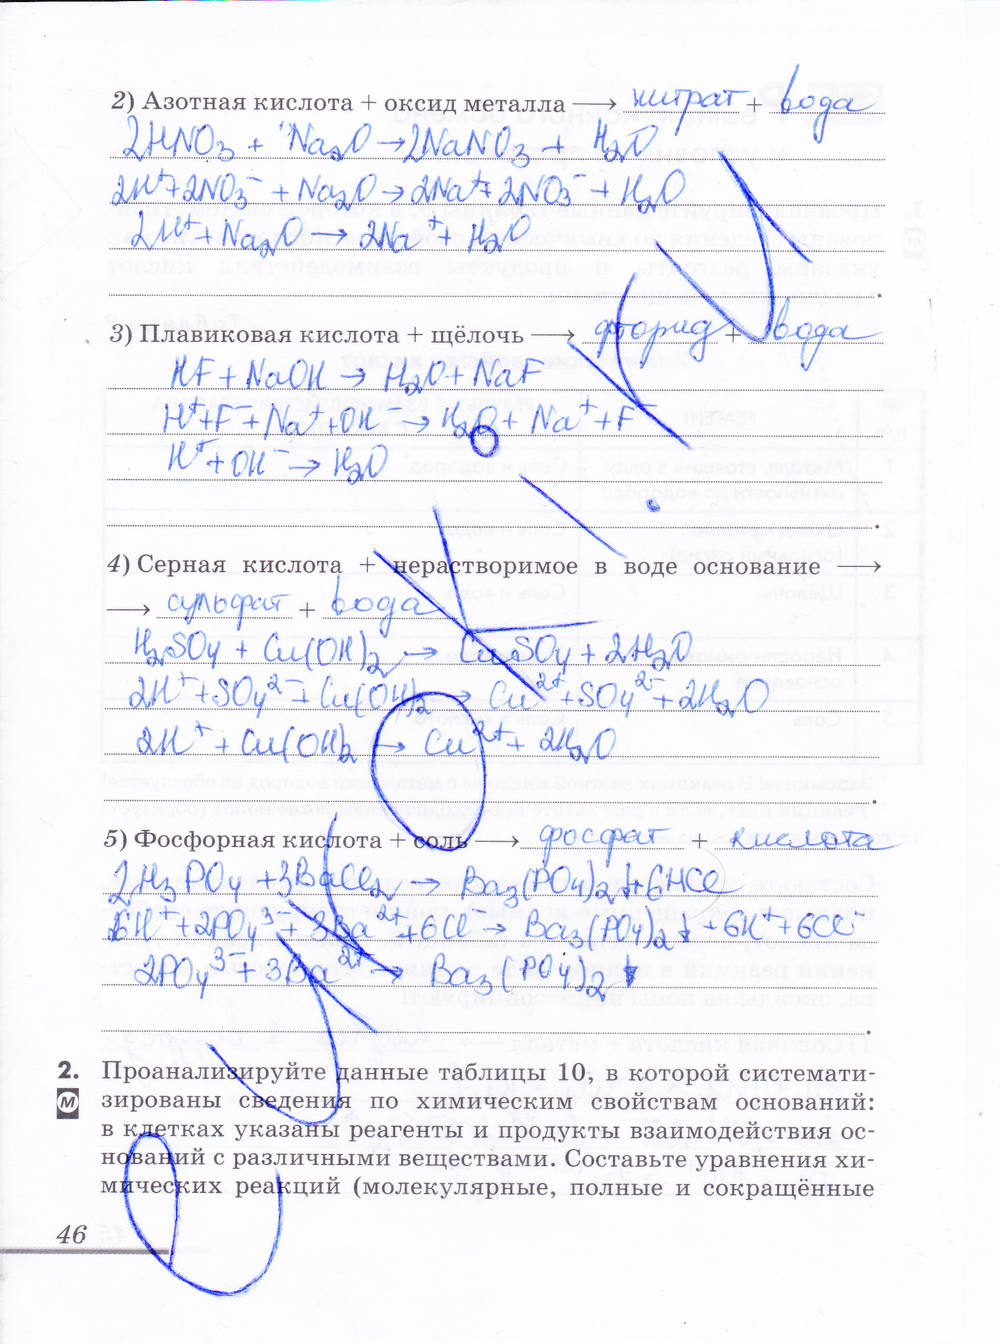 2) Азотная кислота + оксид металла ⟶ нитрат + вода
2HNO₃ + Na₂O → 2NaNO₃ + H₂O
2H⁺ + 2NO₃⁻ + Na₂O → 2Na⁺ + 2NO₃⁻ + H₂O
2H⁺ + Na₂O → 2Na⁺ + H₂O
3) Плавиковая кислота + щёлочь ⟶ фторид + вода
HF + NaOH → H₂O + NaF
H⁺ + F⁻ + Na⁺ + OH⁻ → H₂O + Na⁺ + F⁻
H⁺ + OH⁻ → H₂O
4) Серная кислота + нерастворимое в воде основание ⟶
⟶ сульфат + вода
H₂SO₄ + Cu(OH)₂ → CuSO₄ + 2H₂O
2H⁺ + SO₄²⁻ + Cu(OH)₂ → Cu²⁺ + SO₄²⁻ + 2H₂O
2H⁺ + Cu(OH)₂ → Cu²⁺ + 2H₂O
5) Фосфорная кислота + соль ⟶ фосфат + кислота
2H₃PO₄ + 3BaCl₂ → Ba₃(PO₄)₂↓ + 6HCl
6H⁺ + 2PO₄³⁻ + 3Ba²⁺ + 6Cl⁻ → Ba₃(PO₄)₂↓ + 6H⁺ + 6Cl⁻
2PO₄³⁻ + 3Ba²⁺ → Ba₃(PO₄)₂↓
2. Проанализируйте данные таблицы 10, в которой системати-
М зированы сведения по химическим свойствам оснований:
в клетках указаны реагенты и продукты взаимодействия ос-
нований с различными веществами. Составьте уравнения хи-
мических реакций (молекулярные, полные и сокращённые
46